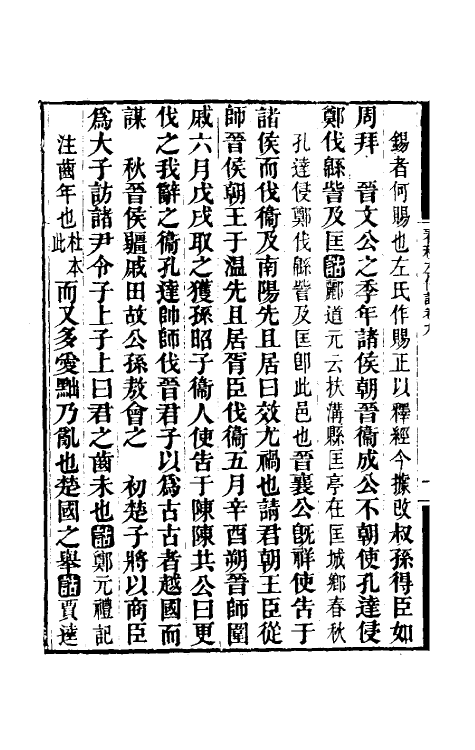 錫者何賜也左氏作賜正以釋經今據改叔孫得臣如
周拜　晉文公之季年諸侯朝晉衞成公不朝使孔達侵
鄭伐緜訾及匡詁酈道元云扶溝縣匡亭在匡城鄉春秋
孔達侵鄭伐緜訾及匡卽此邑也晉襄公旣祥使告于
諸侯而伐衞及南陽先且居曰效尤禍也請君朝王臣從
師晉侯朝王于温先且居胥臣伐衞五月辛酉朔晉師圍
戚六月戊戌取之獲孫昭子衞人使告于陳陳共公曰更
伐之我辭之衞孔達帥師伐晉君子以爲古古者越國而
謀　秋晉侯疆戚田故公孫敖會之　初楚子將以商臣
爲大子訪諸尹令子上子上曰君之齒未也詁鄭元禮記
注齒年也杜本此而又多愛黜乃亂也楚國之舉詁賈逵